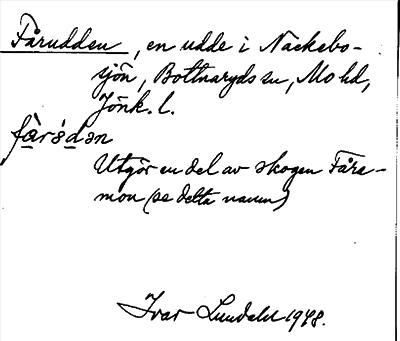 Fårudden, en udde i Näckebo-
sjön, Bottnaryds sn, Mo hd,
Jönk. l.
Utgör en del av skogen Fåra-
mon (se detta namn)
Ivar Lundahl 1948.